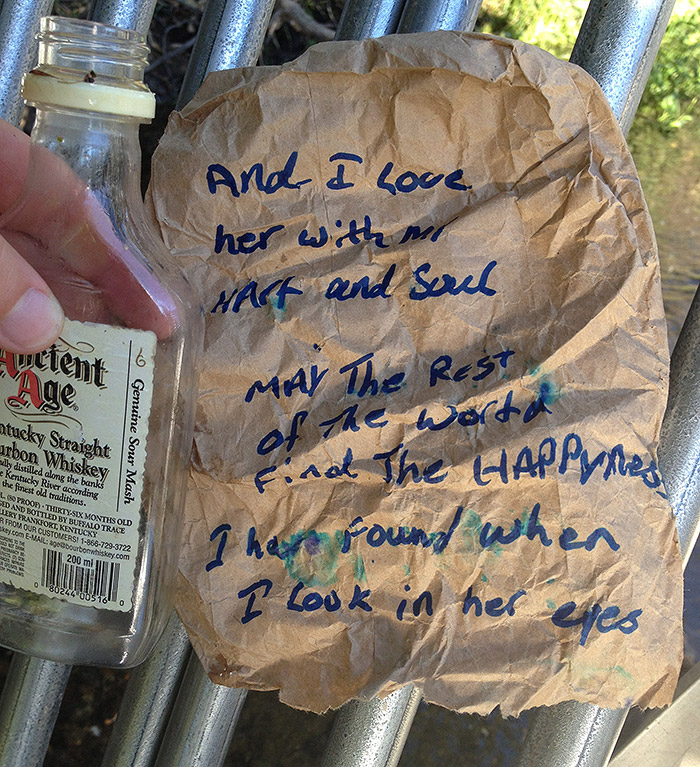 Ancient
Age
ntucky Straight
urbon Whiskey
ally distilled along the banks
e Kentucky River according
the finest old traditions.
L. (80 PROOF) · THIRTY-SIX MONTHS OLD
ED AND BOTTLED BY BUFFALO TRACE
LLERY FRANKFORT, KENTUCKY
R FROM OUR CUSTOMERS! 1-866-729-3722
key.com E-MAIL: age@bourbonwhiskey.com
200 ml
80244 00516 0
Genuine Sour Mash
And I Love
her with my
HArt and Soul
MAY The Rest
of The World
Find The HAPPyness
I hav Found when
I Look in her eyes